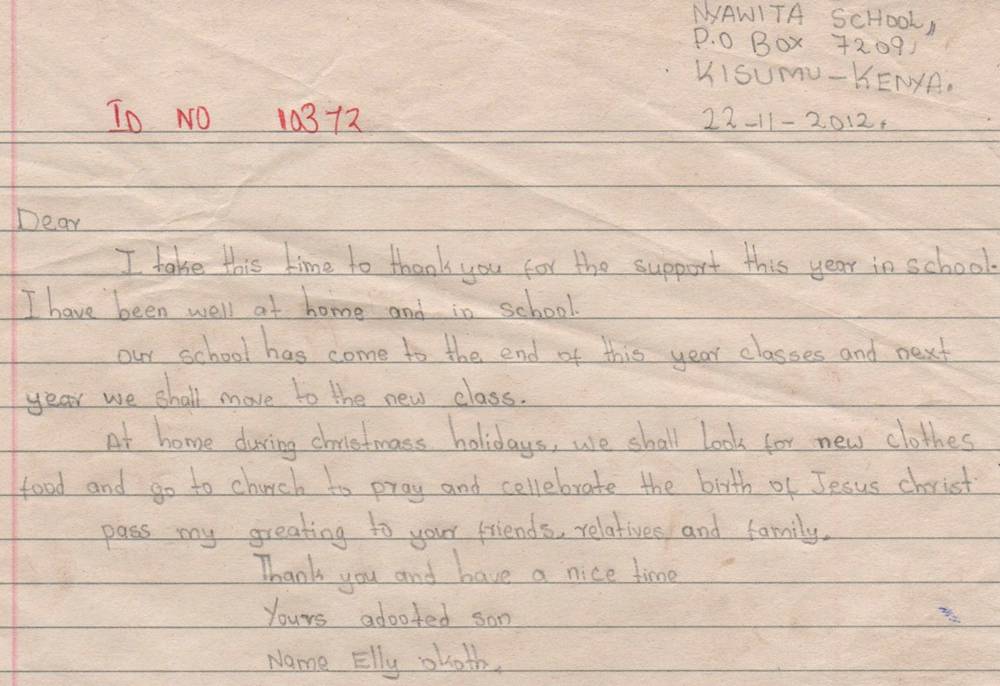 NYAWITA SCHOOL,
P.O BOX 7209,
KISUMU-KENYA.
ID NO 10372
22-11-2012.
Dear
I take this time to thank you for the support this year in school.
I have been well at home and in school.
Our school has come to the end of this year classes and next
year we shall move to the new class.
At home during christmass holidays, we shall look for new clothes
food and go to church to pray and cellebrate the birth of Jesus christ
pass my greating to your friends, relatives and family.
Thank you and have a nice time
Yours adooted son
Name Elly okoth.